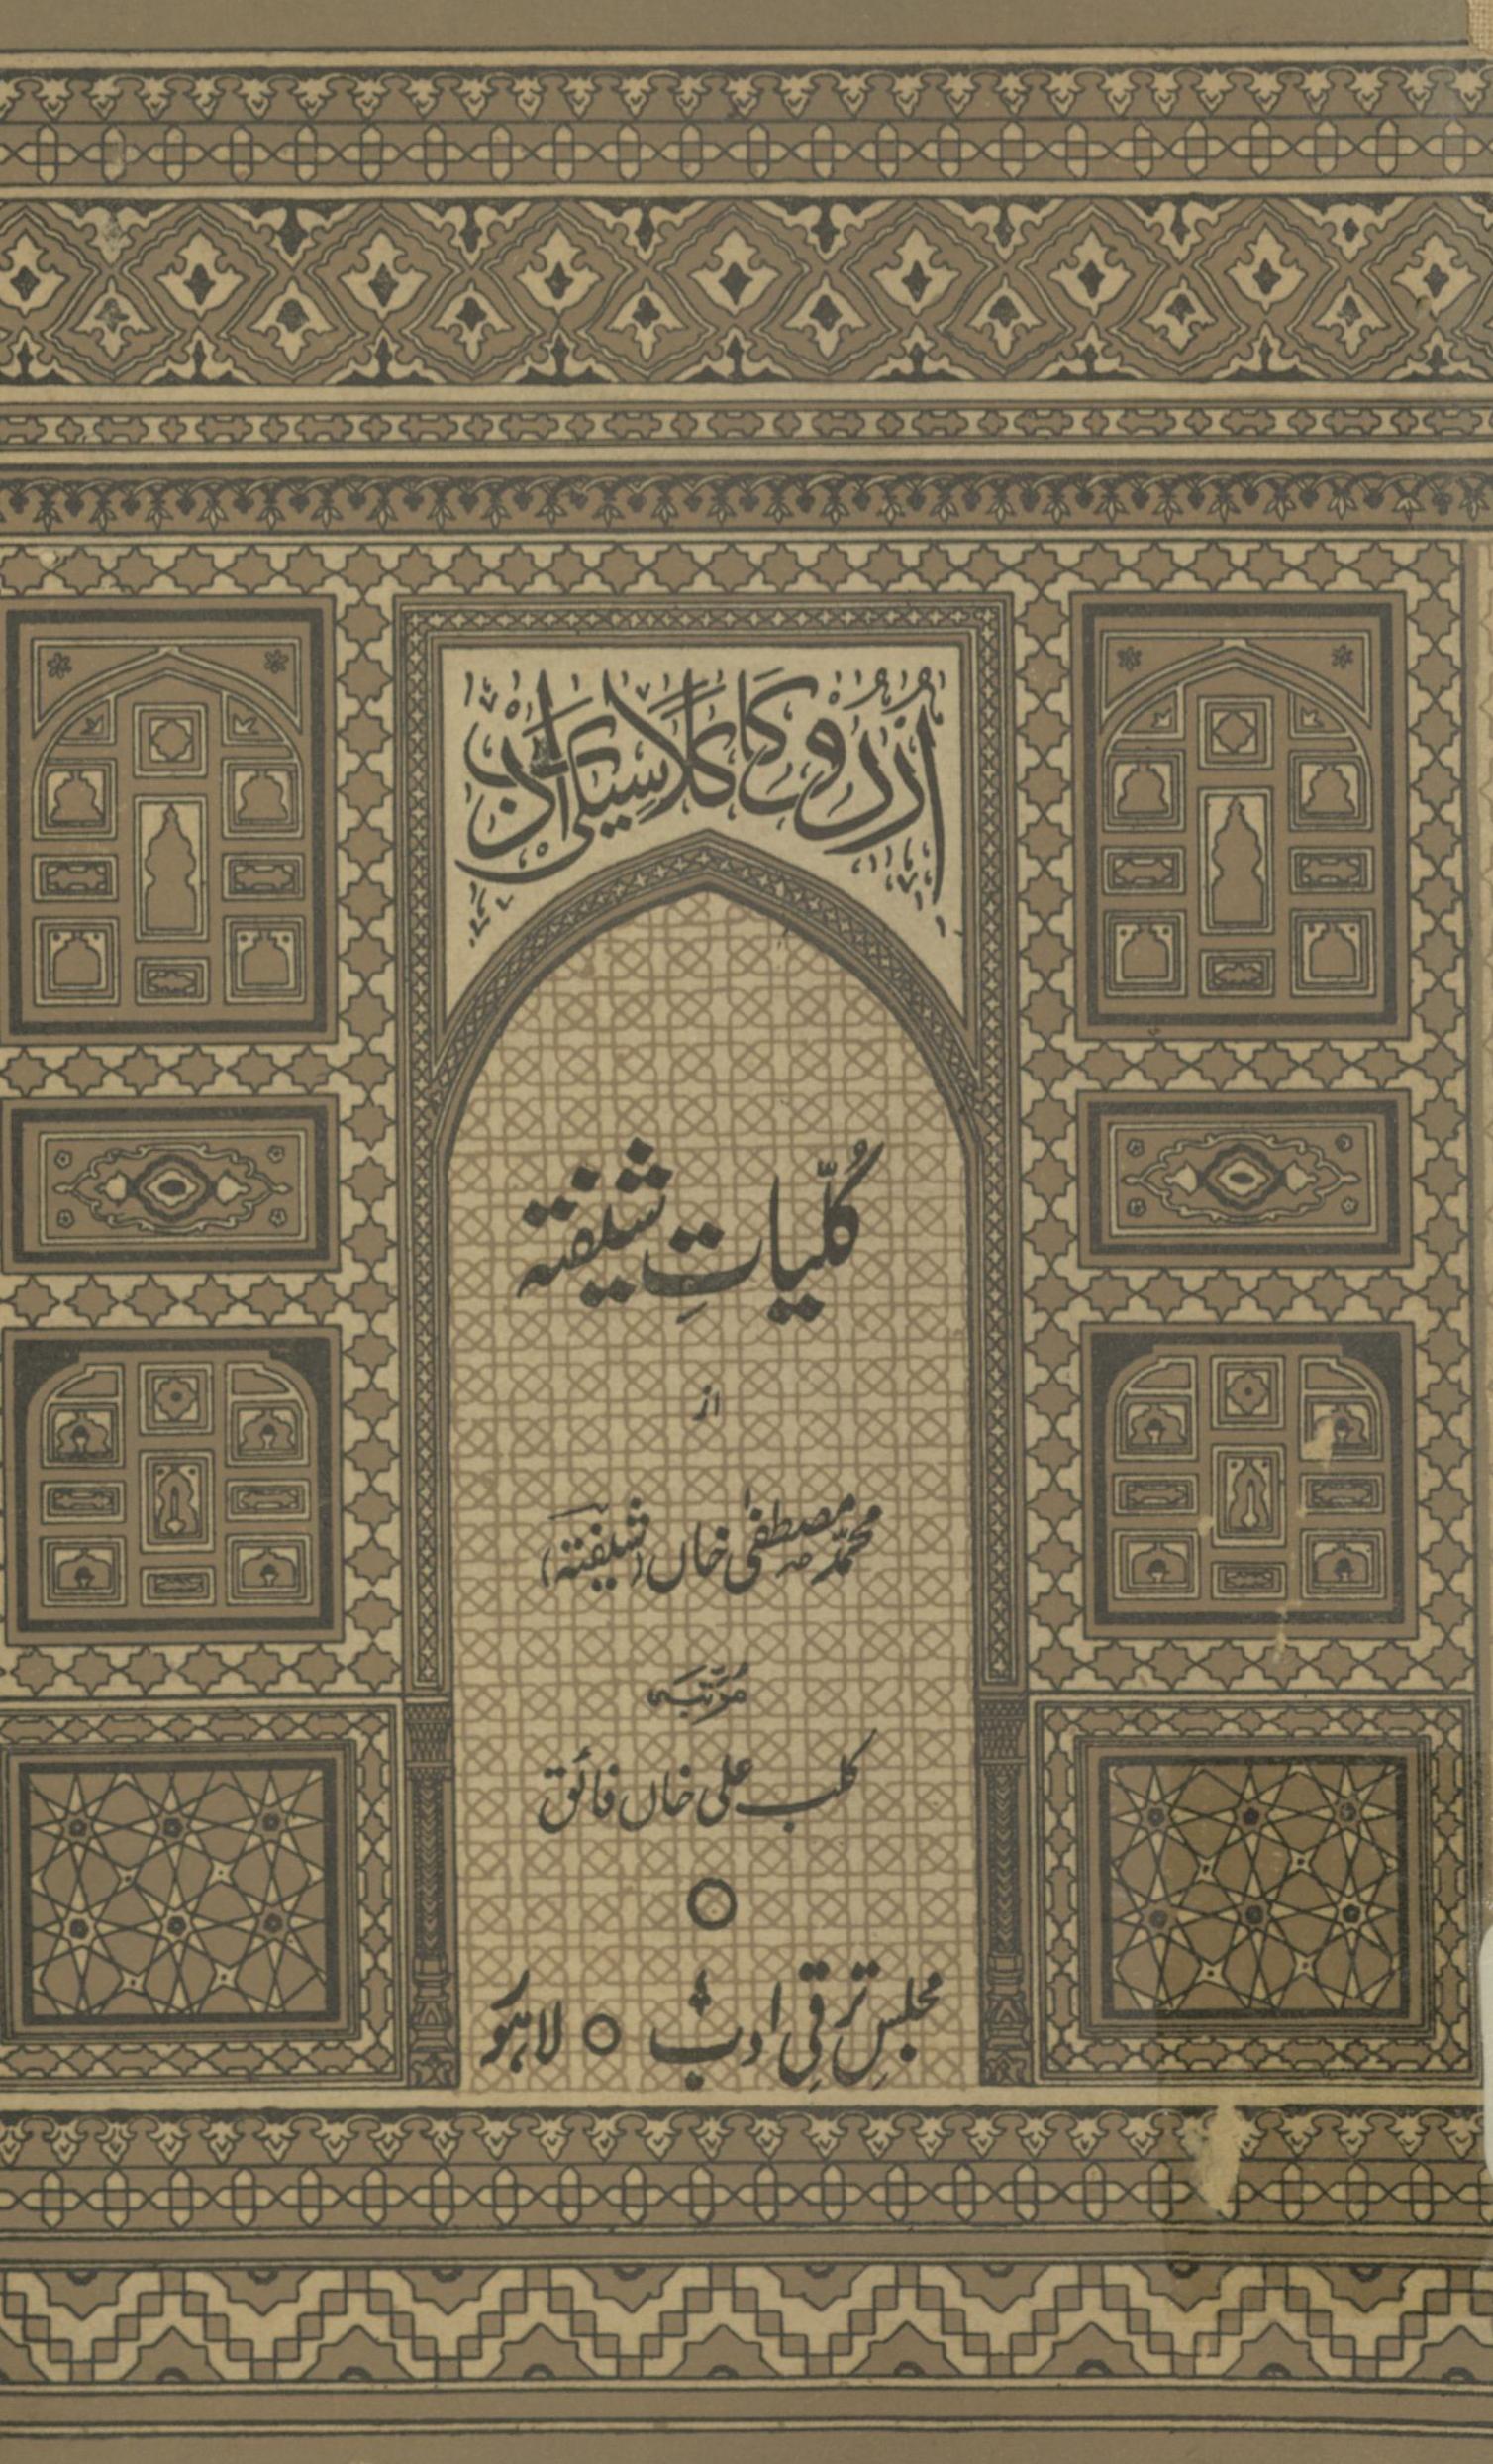 اُردو کا کلاسیکی ادب
کُلّیاتِ شیفتہ
از
محمّد مصطفیٰ خاں (شیفتہ)
مُرتّبہ
کلب علی خاں فائق
مجلسِ ترقیِ ادب ○ لاہور